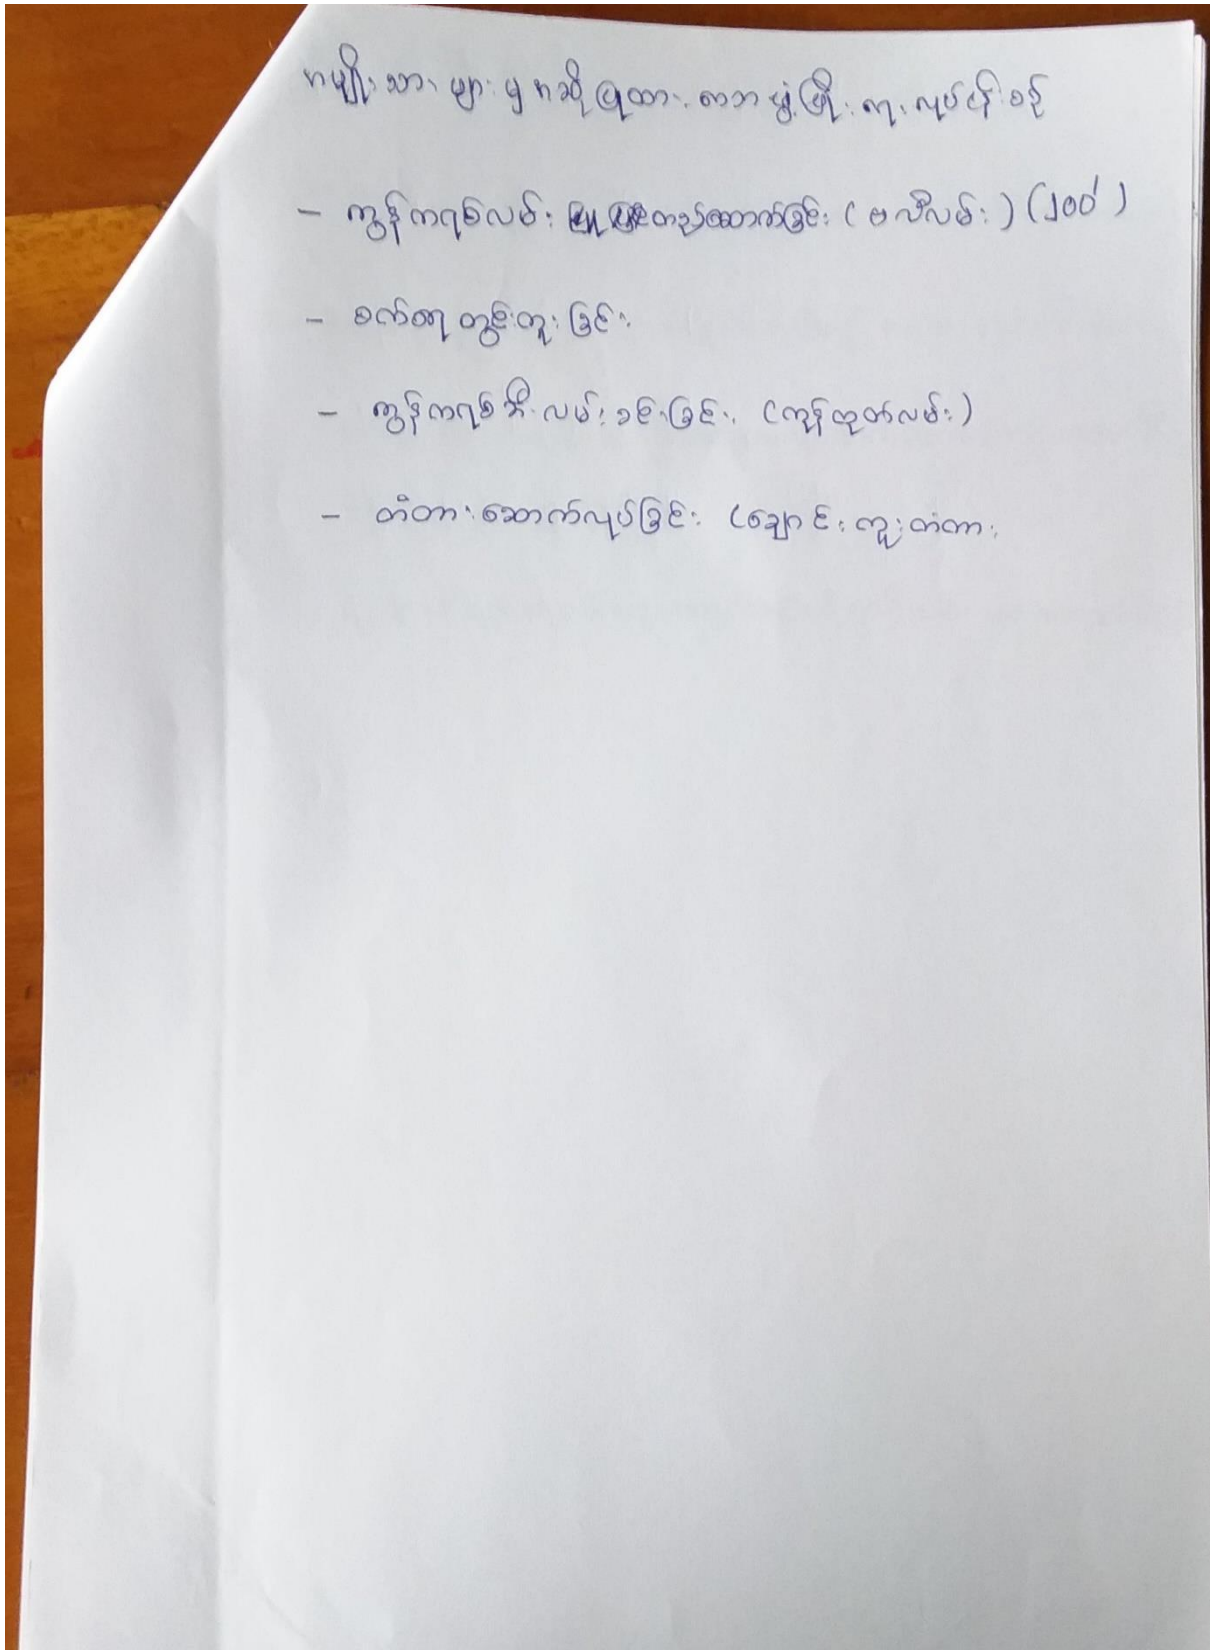 အမျိုးသားများမှ အဆိုပြုထား ဖွံ့ဖြိုးရေး လုပ်ငန်းစဉ်
– ကွန်ကရစ်လမ်း တည်ဆောက်ခြင်း (ဗလီလမ်း) (၂၀၀')
– စက်ရေတွင်းတူးခြင်း
– ကွန်ကရစ်အီးလမ်းခင်းခြင်း (ကုန်ထုတ်လမ်း)
– တံတားဆောက်လုပ်ခြင်း (ချောင်းကူးတံတား